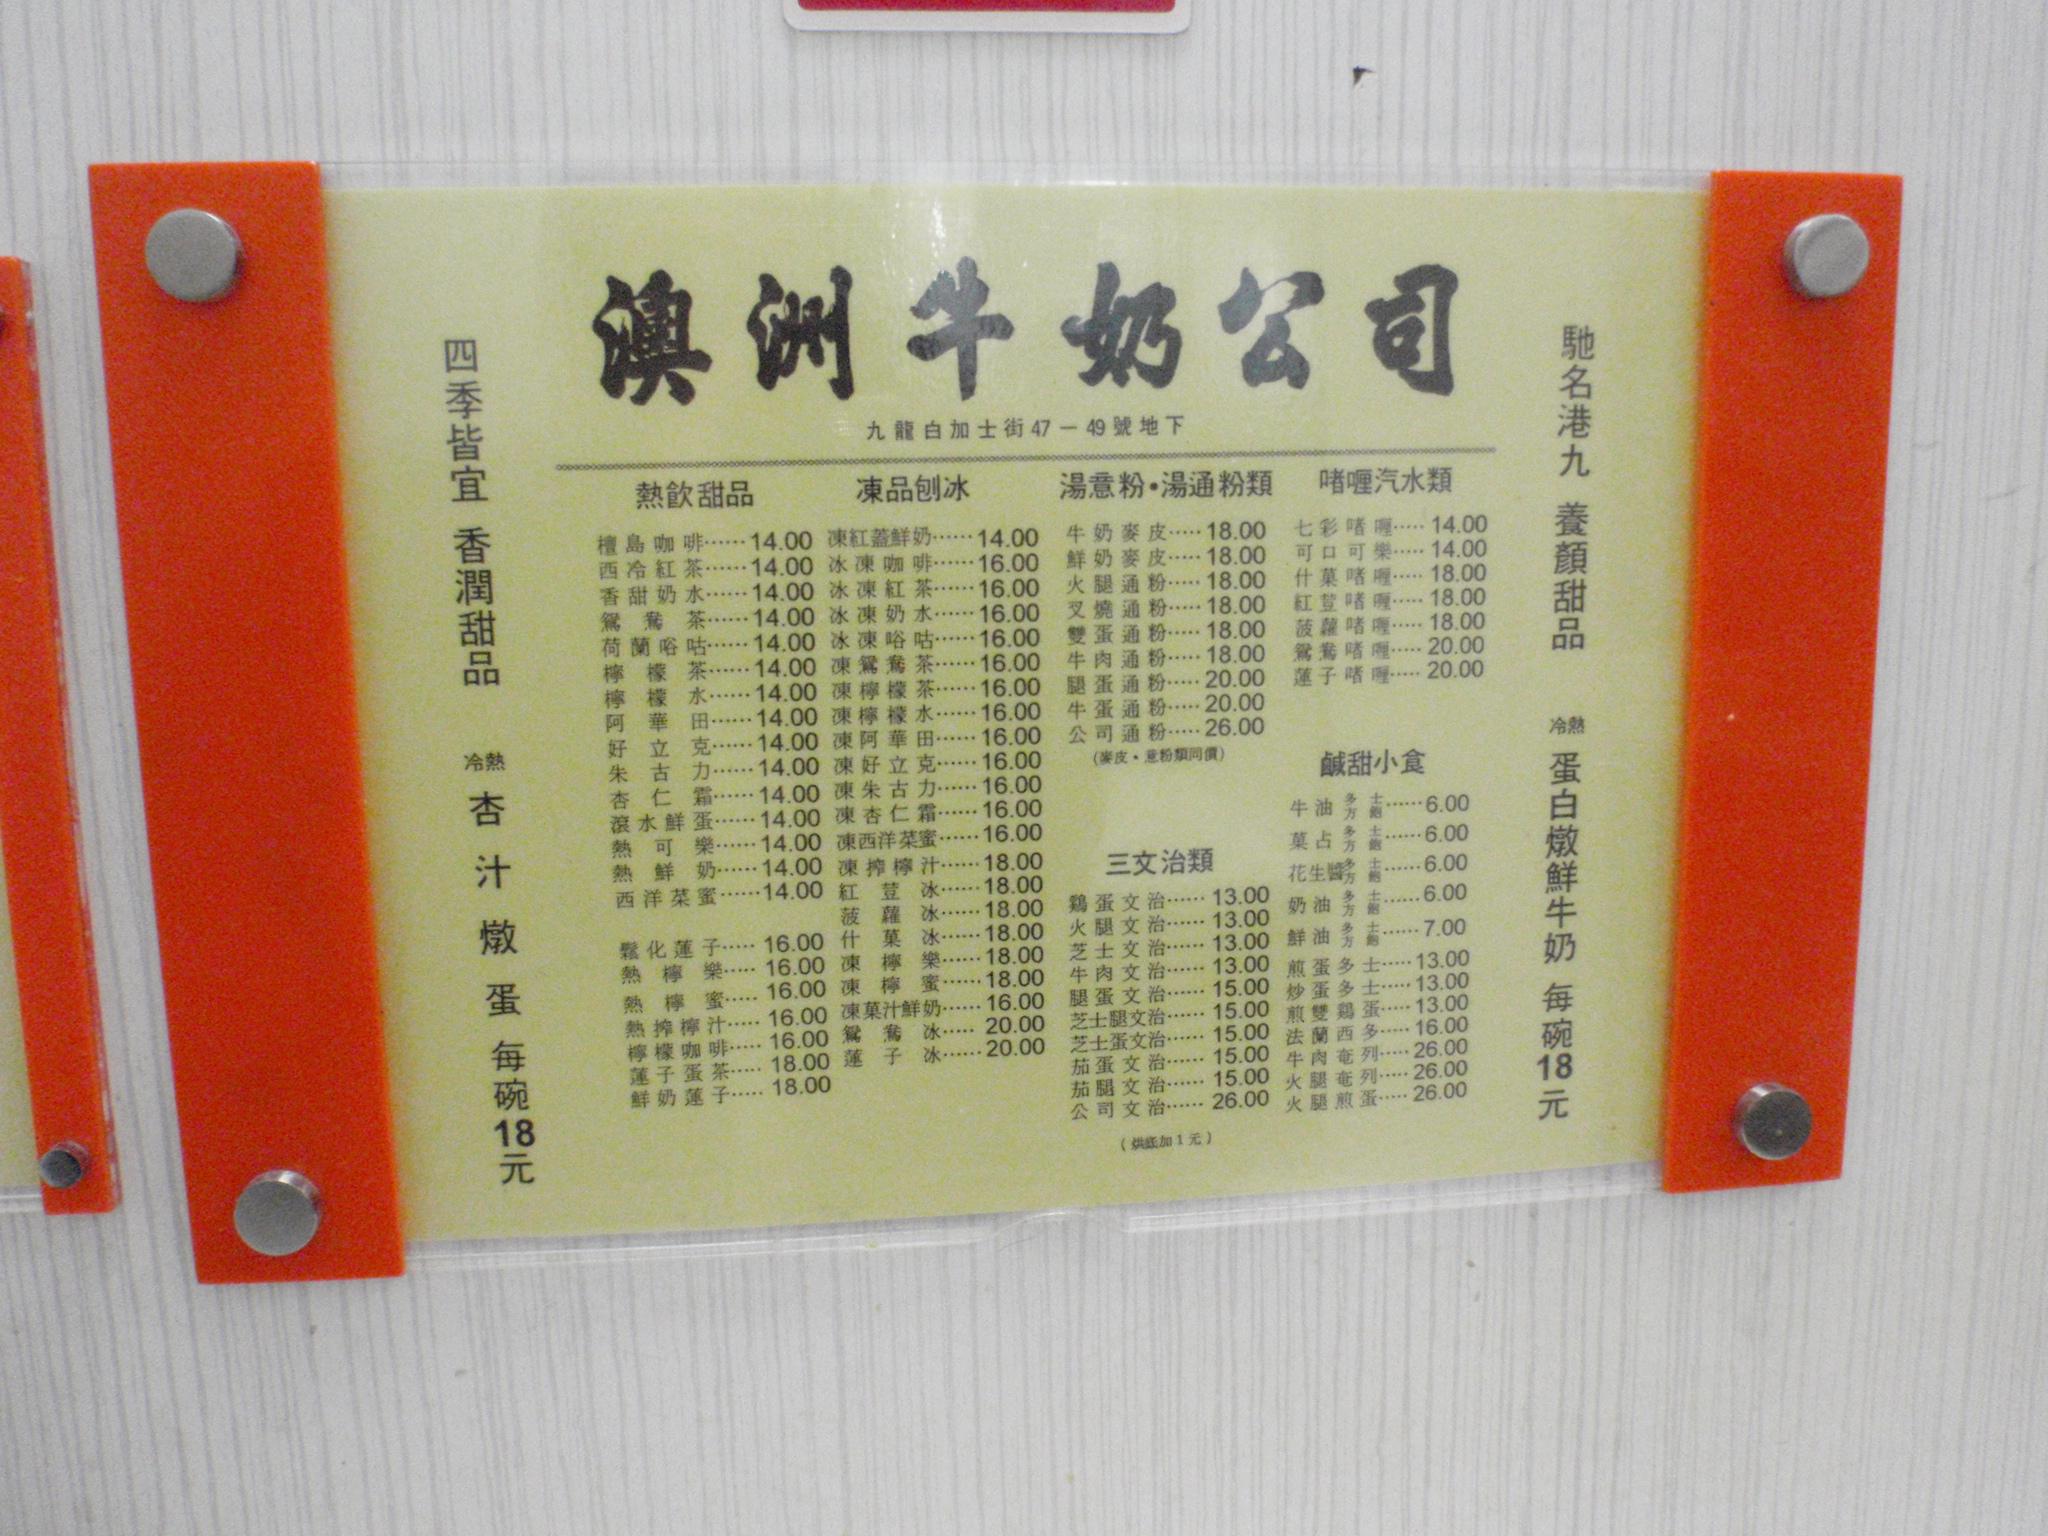 澳洲牛奶公司
九龍白加士街47－49號地下
馳名港九 養顏甜品 冷熱 蛋白燉鮮牛奶 每碗18元
四季皆宜 香潤甜品 冷熱 杏汁燉蛋 每碗18元
熱飲甜品
檀島咖啡……14.00
西冷紅茶……14.00
香甜奶水……14.00
鴛鴦茶……14.00
荷蘭唂咕……14.00
檸檬茶……14.00
檸檬水……14.00
阿華田……14.00
好立克……14.00
朱古力……14.00
杏仁霜……14.00
滾水鮮蛋……14.00
熱可樂……14.00
熱鮮奶……14.00
西洋菜蜜……14.00
鬆化蓮子……16.00
熱檸樂……16.00
熱檸蜜……16.00
熱搾檸汁……16.00
檸檬咖啡……16.00
蓮子蛋茶……18.00
鮮奶蓮子……18.00
凍品刨冰
凍紅蓋鮮奶……14.00
冰凍咖啡……16.00
冰凍紅茶……16.00
冰凍奶水……16.00
冰凍唂咕……16.00
凍鴛鴦茶……16.00
凍檸檬茶……16.00
凍檸檬水……16.00
凍阿華田……16.00
凍好立克……16.00
凍朱古力……16.00
凍杏仁霜……16.00
凍西洋菜蜜……16.00
凍搾檸汁……18.00
紅荳冰……18.00
菠蘿冰……18.00
什菓冰……18.00
凍檸樂……18.00
凍檸蜜……18.00
凍菓汁鮮奶……16.00
鴛鴦冰……20.00
蓮子冰……20.00
湯意粉・湯通粉類
牛奶麥皮……18.00
鮮奶麥皮……18.00
火腿通粉……18.00
叉燒通粉……18.00
雙蛋通粉……18.00
牛肉通粉……18.00
腿蛋通粉……20.00
牛蛋通粉……20.00
公司通粉……26.00
(麥皮・意粉類同價)
三文治類
鷄蛋文治……13.00
火腿文治……13.00
芝士文治……13.00
牛肉文治……13.00
腿蛋文治……15.00
芝士腿文治……15.00
芝士蛋文治……15.00
茄蛋文治……15.00
茄腿文治……15.00
公司文治……26.00
(烘底加1元)
啫喱汽水類
七彩啫喱……14.00
可口可樂……14.00
什菓啫喱……18.00
紅荳啫喱……18.00
菠蘿啫喱……18.00
鴛鴦啫喱……20.00
蓮子啫喱……20.00
鹹甜小食
牛油多士方飽……6.00
菓占多士方飽……6.00
花生醬多士方飽……6.00
奶油多士方飽……6.00
鮮油多士方飽……7.00
煎蛋多士……13.00
炒蛋多士……13.00
煎雙鷄蛋……13.00
法蘭西多……16.00
牛肉奄列……26.00
火腿奄列……26.00
火腿煎蛋……26.00